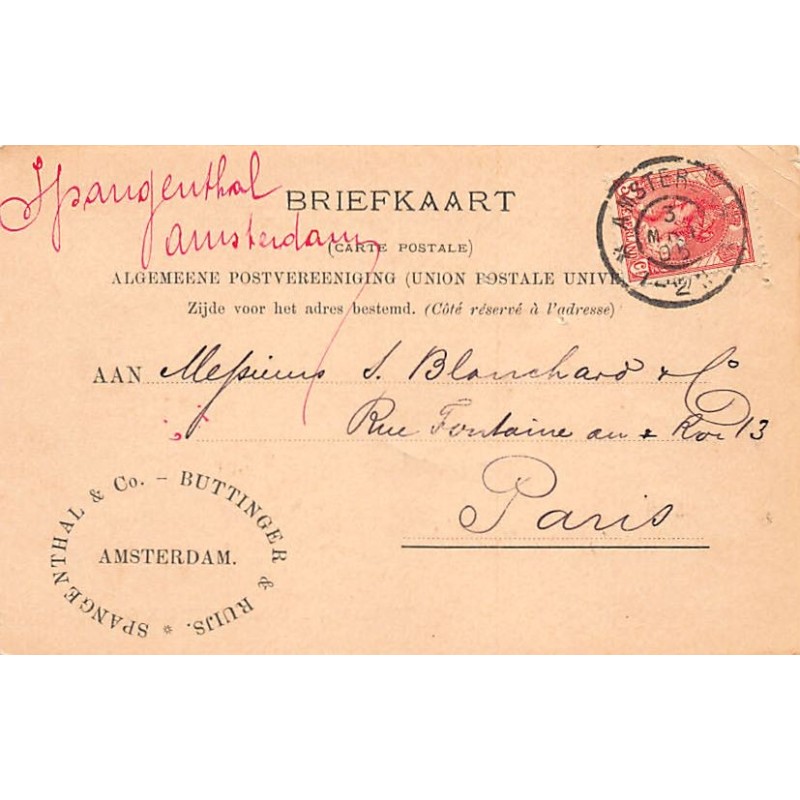 Spangenthal
Amsterdam
BRIEFKAART
(CARTE POSTALE)
ALGEMEENE POSTVEREENIGING (UNION POSTALE UNIVE
Zijde voor het adres bestemd. (Côté réservé à l'adresse)
AAN Messieurs S. Blanchard & Co
Rue Fontaine au Roi 13
Paris
SPANGENTHAL & Co. - BUTTINGER & RUIJS. *
AMSTERDAM.
* AMSTER
3
2